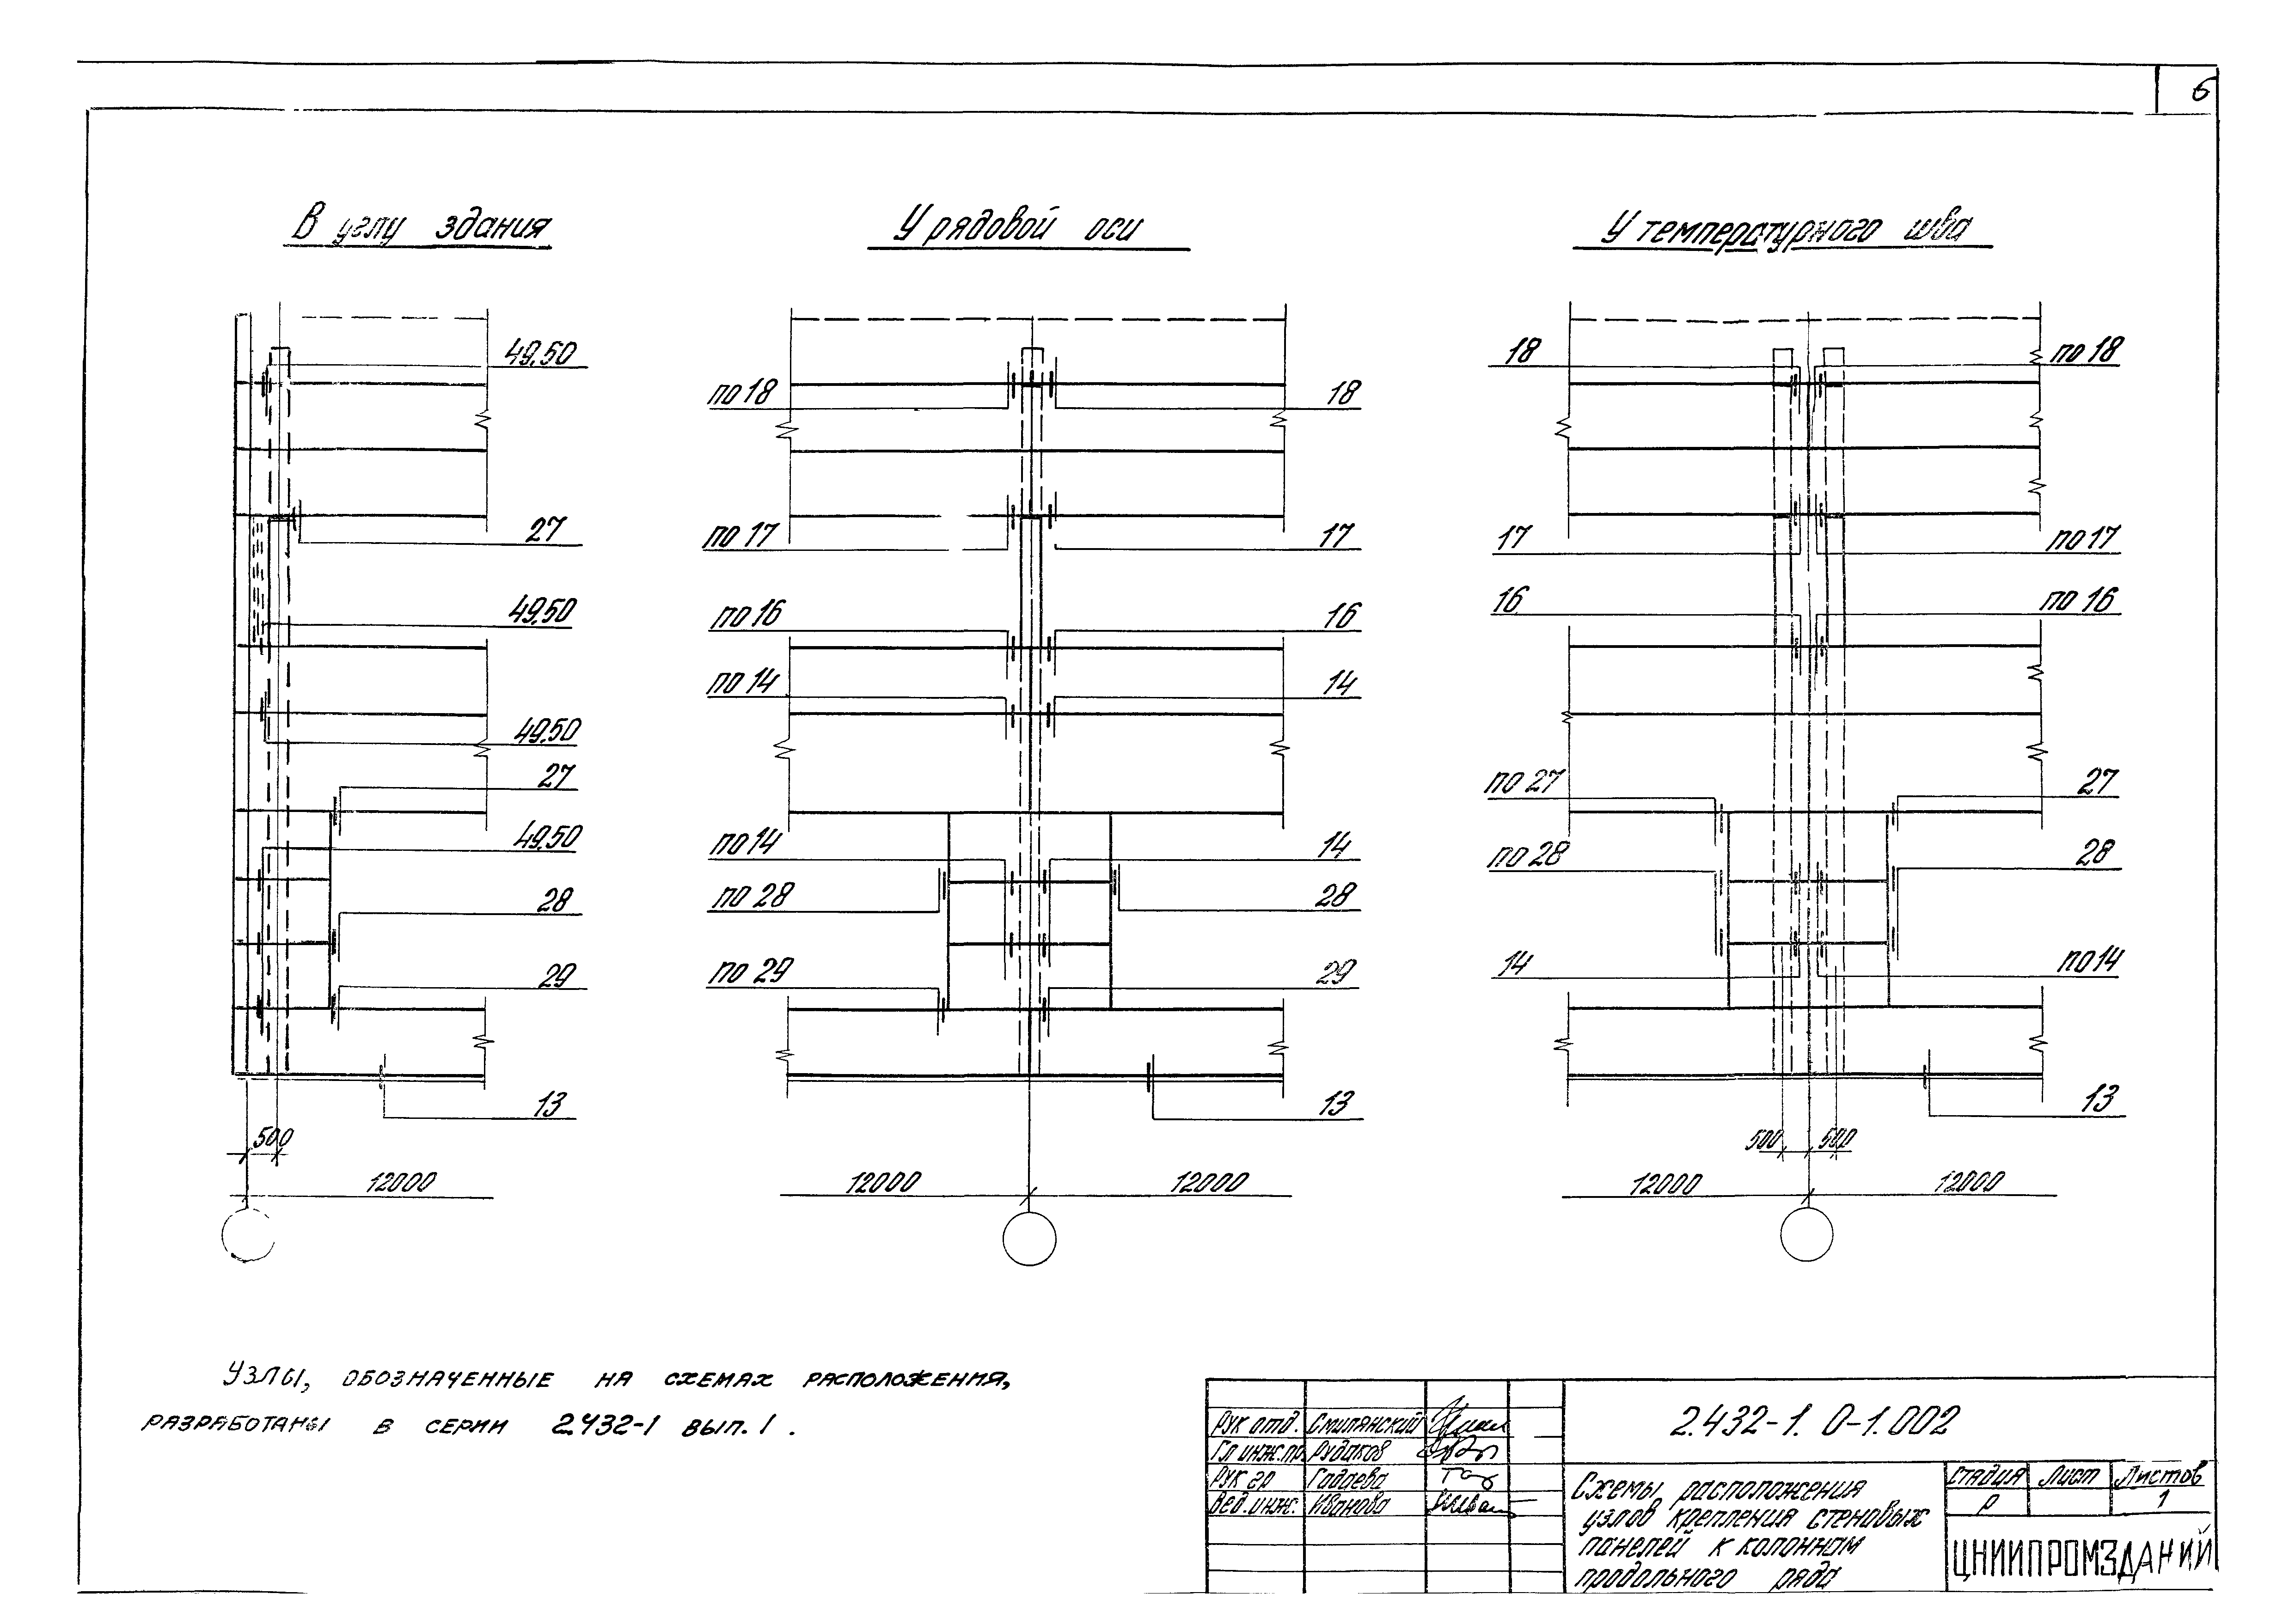 6
В углу здания
49,50
27
49,50
49,50
27
49,50
28
29
13
500
12000
У рядовой оси
по 18
18
по 17
17
по 16
16
по 14
14
по 14
14
по 28
28
по 29
29
13
12000
12000
У температурного шва
18
по 18
17
по 17
16
по 16
по 27
27
по 28
28
14
по 14
13
500
500
12000
12000
Узлы, обозначенные на схемах расположения,
разработаны в серии 2.432-1 вып. 1.
Рук отд. Смилянский
Гл инж.пр. Рудаков
Рук гр Гадаева
Вед. инж. Иванова
2.432-1. 0-1.002
Схемы расположения
узлов крепления стеновых
панелей к колоннам
продольного ряда
Стадия Лист Листов
Р 1
ЦНИИПРОМЗДАНИЙ